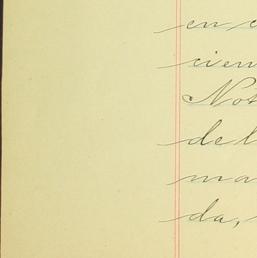 en
cien
Not
del
ma
da,